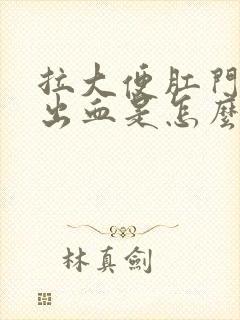 拉大便肛門
出血是怎麼
林真劍